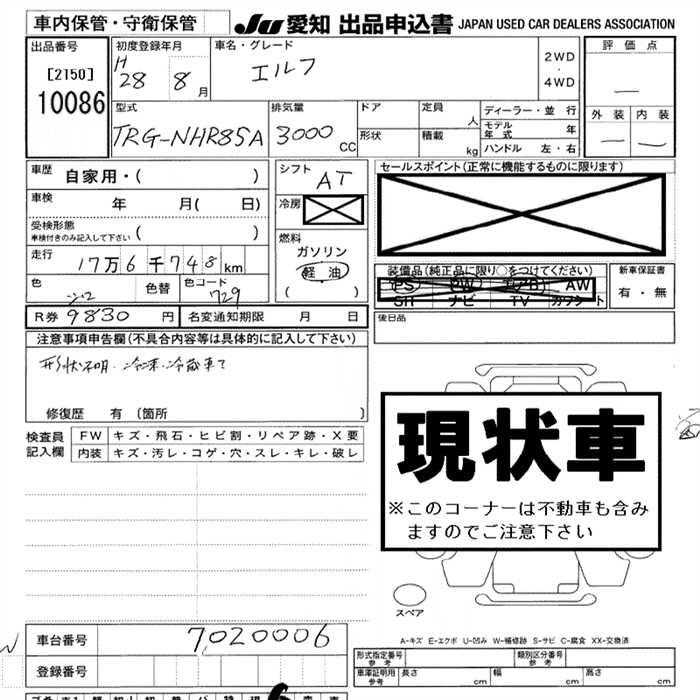 車内保管・守衛保管 JU 愛知 出品申込書 JAPAN USED CAR DEALERS ASSOCIATION
出品番号 初度登録年月 車名・グレード 評価点
[2150] H 28 8 月 エルフ 2WD ・ 4WD
10086
外装 内装
型式 排気量 ドア 定員 人 ディーラー・並行
TRG-NHR85A 3000 CC 形状 積載 kg モデル年式 年
ハンドル 左・右
車歴 自家用・( ) シフト AT セールスポイント(正常に機能するものに限ります)
車検 年 月( 日) 冷房
受検形態
車検付きのみ記入して下さい ( ) 燃料
ガソリン
走行 17万6千748km 軽油
( )
装備品(純正品に限り○をつけてください) 新車保証書
PS PW エアB AW 有・無
SH ナビ TV カワシート
色 シロ 色替 色コード 729
R券 9830 円 名変通知期限 月 日 後日品
注意事項申告欄(不具合内容等は具体的に記入して下さい)
形状不明・冷凍・冷蔵車て
修復歴 有 〔箇所 〕
検査員記入欄 FW キズ・飛石・ヒビ割・リペア跡・X要
内装 キズ・汚レ・コゲ・穴・スレ・キレ・破レ
現状車
※このコーナーは不動車も含み
ますのでご注意下さい
スペア
A-キズ E-エクボ U-凹み W-補修跡 S-サビ C-腐食 XX-交換済
車台番号 7020006
登録番号
形式指定番号 参考 類別区分番号 参考
車庫証明用 参考 長さ cm 幅 cm 高さ cm